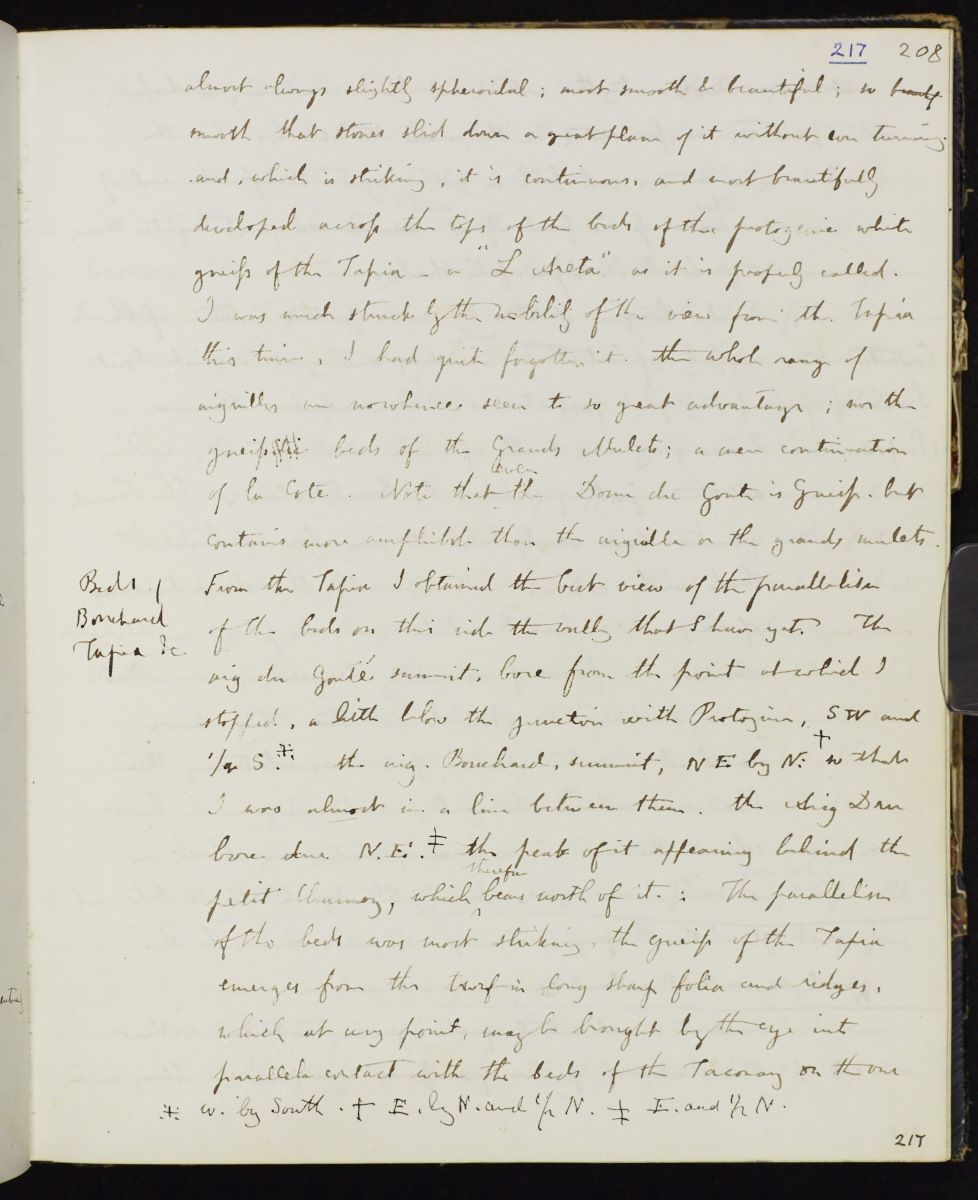 217 208
almost always slightly spheroidal; most smooth & beautiful; so beautif
smooth that stones slid down a great plane of it without even turning.
and, which is striking, it is continuous, and most beautifully
developed across the tops of the beds of the protogine white
gneiss of the Tapia - or "L Areta" as it is properly called.
I was much struck by the nobility of the view from the Tapia
this time, I had quite forgotten it. the whole range of
aiguilles are nowhere seen to so great advantage; nor the
gneiss beds of the Grands Mulets; a mere continuation
of la Cote. Note that even the Dome du Goute is Gneiss. but
contains more amphibole than the aiguille or the grands mulets.
Beds /
Bouchard
Tapia &c
From the Tapia I obtained the best view of the parallelism
of the beds on this side the valley that I have yet. The
aig du Gouté summit, bore from the point at which I
stopped, a little below the junction with Protogine, SW and
1/2 S.⁜ the aig. Bouchard, summit, NE by N.† so that
I was almost in a line between them. the Aig Dru
bore due N.E.‡ the peak of it appearing behind the
petit Charmoz, which therefore bears north of it. : The parallelism
of the beds was most striking, the gneiss of the Tapia
emerges from the turf in long sharp folia and ridges,
which at any point, may be brought by the eye into
parallel contact with the beds of the Taconay on the one
⁜ W. by South. † E. by N. and 1/2 N. ‡ E. and 1/2 N.
217